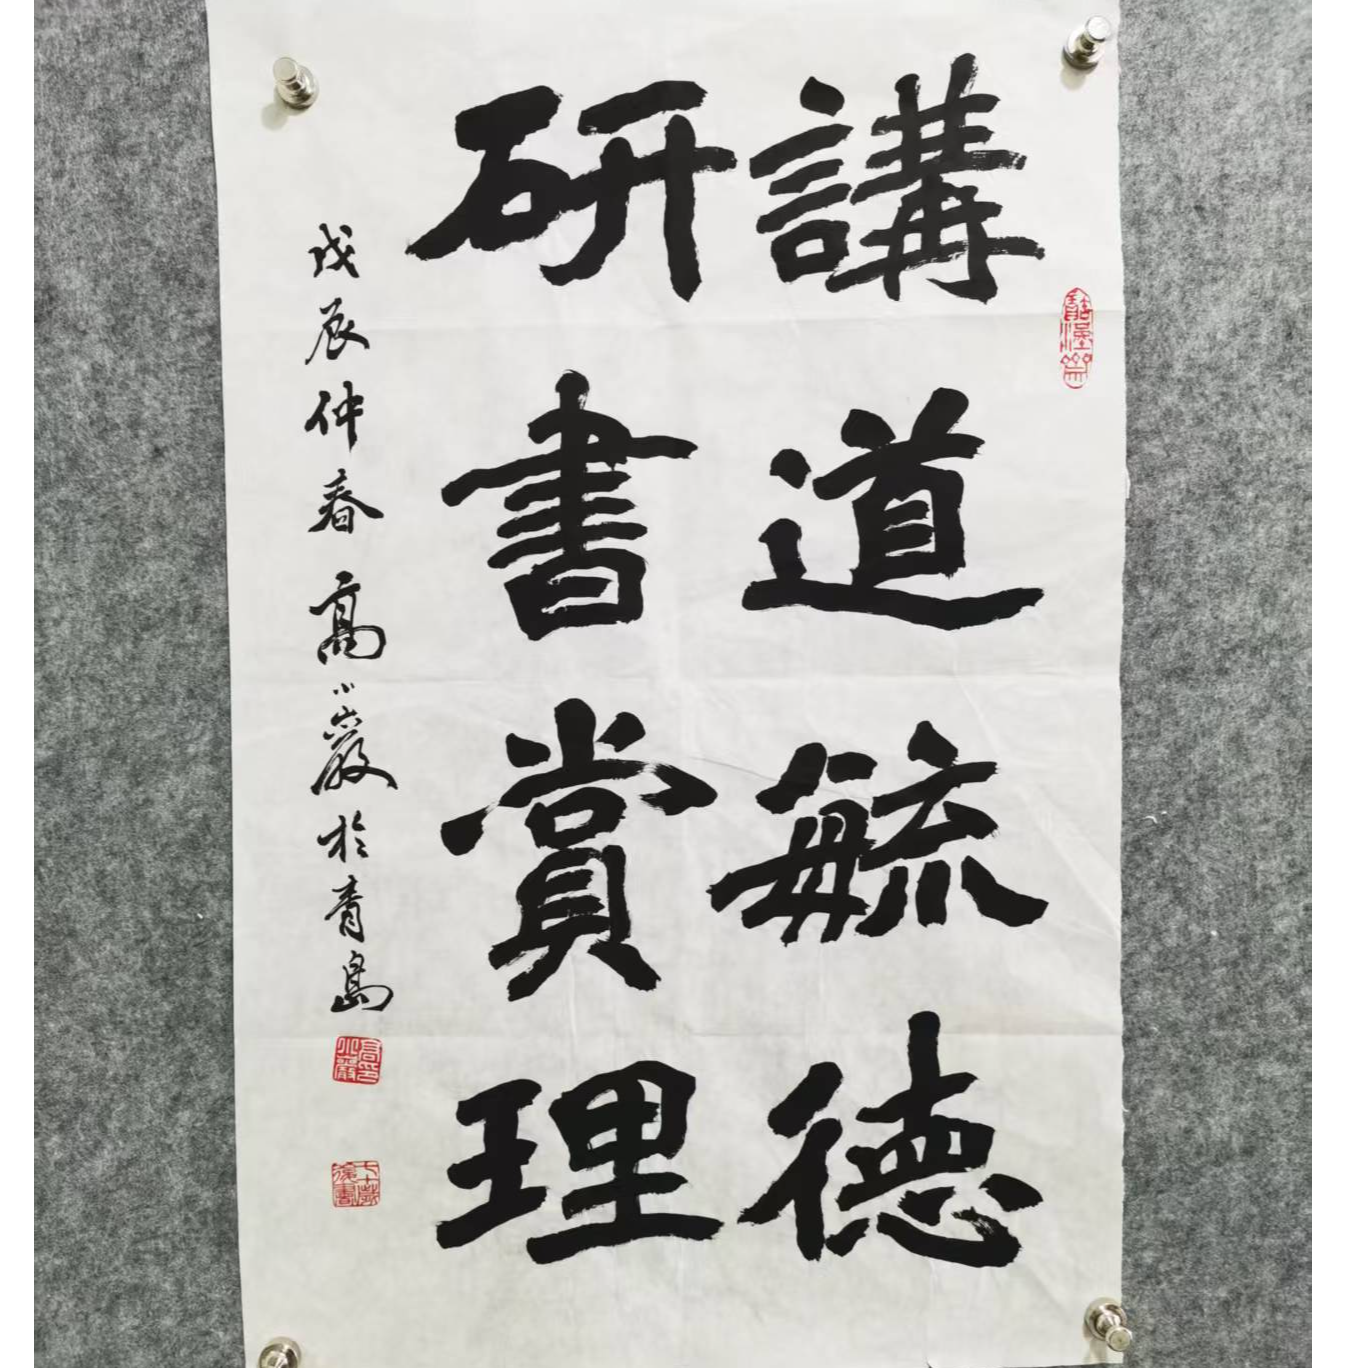 講道毓德
研書賞理
戊辰仲春高小巖於青島